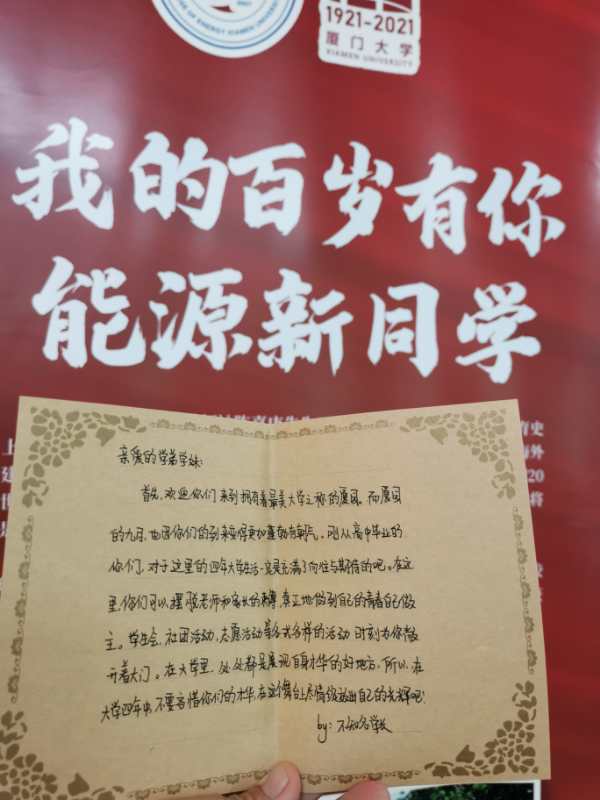 OF ENERGY XIAMEN UNIVERSITY
1921-2021
厦门大学
XIAMEN UNIVERSITY
我的百岁有你
能源新同学
亲爱的学弟学妹:
首先,欢迎你们来到拥有着最美大学之称的厦园。而厦园
的九月,也因你们的到来变得更加蓬勃有朝气。刚从高中毕业的
你们,对于这里的四年大学生活一定是充满了向往与期待的吧。在这
里,你们可以摆脱老师和家长的束缚,真正地做到自己的青春自己做
主。学生会、社团活动、志愿活动等各式各样的活动时刻为你敞
开着大门。在大学里,处处都是展现自身才华的好地方,所以,在
大学四年中,不要吝惜你们的才华,在这个舞台上尽情绽放出自己的光辉吧!
by:不知名学长